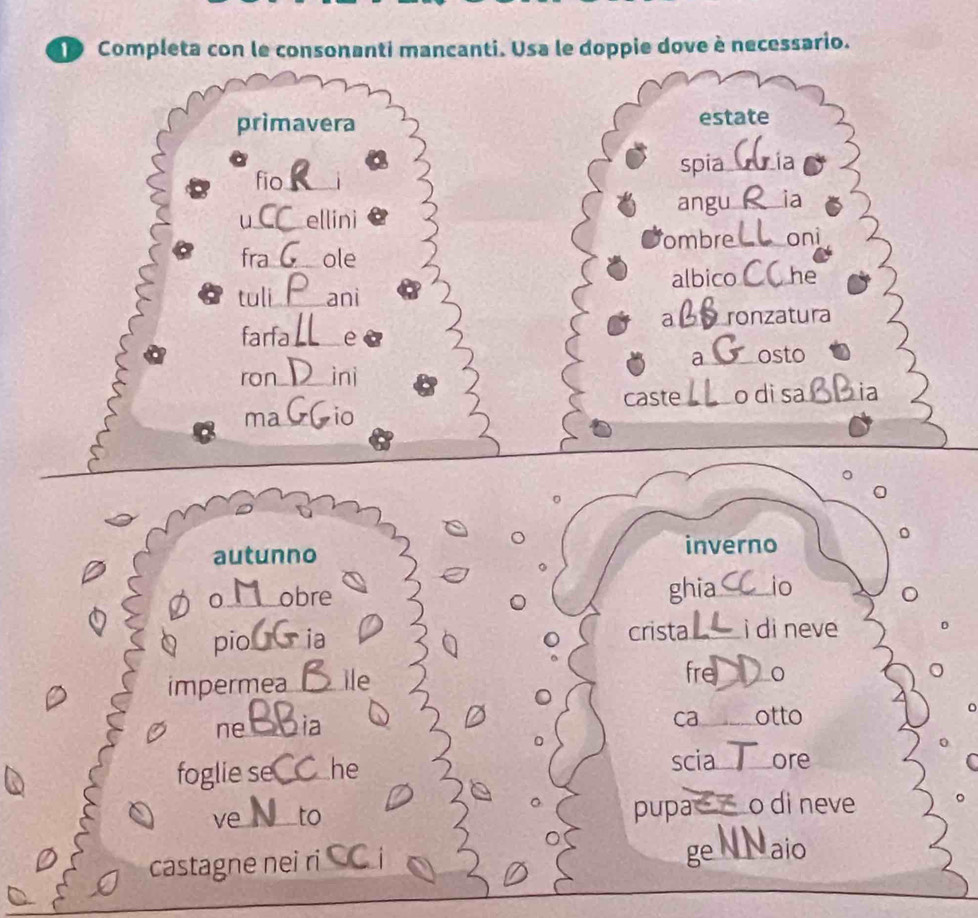 1 Completa con le consonanti mancanti. Usa le doppie dove è necessario.
primavera
fio R i
u CC ellini
fra G ole
tuli P ani
farfa LL e
ron D ini
ma GG io
estate
spia GG ia
angu R ia
ombre LL oni
albico CC he
a BB ronzatura
a G osto
caste LL o di sa BB ia
autunno
o M obre
pio GG ia
impermea B ile
ne BB ia
foglie se CC he
ve N to
castagne nei ri CC i
inverno
ghia CC io
crista LL i di neve
fre DD o
ca____otto
scia T ore
pupa ZZ o di neve
ge NN aio